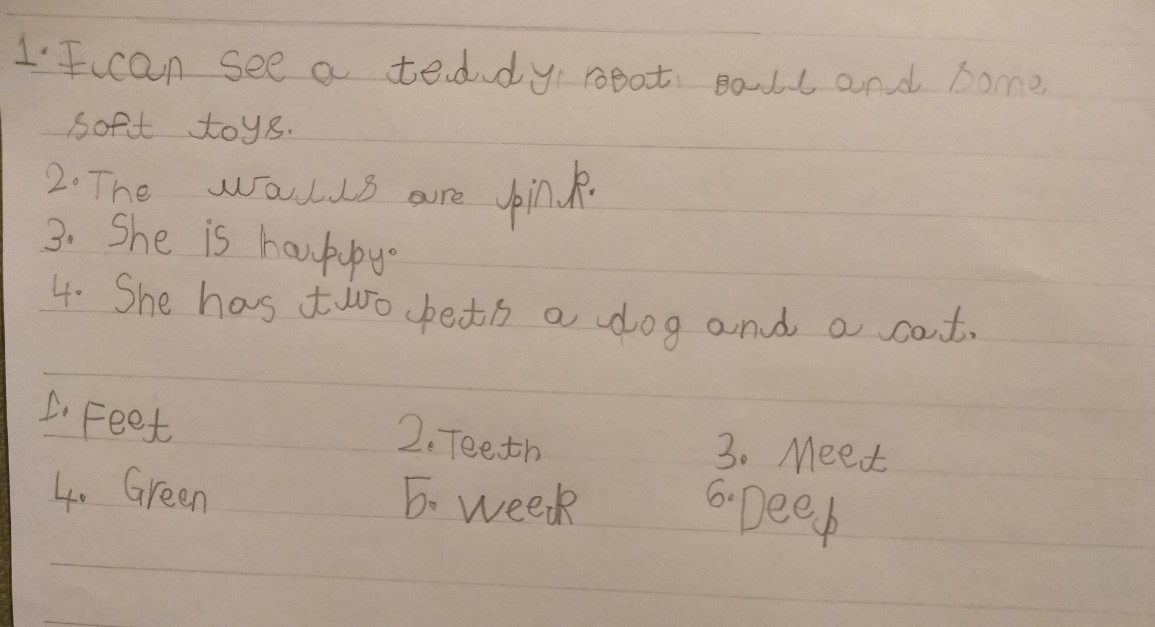 1. I can see a teddy, robot, ball and some
soft toys.
2. The walls are pink.
3. She is happy.
4. She has two pets a dog and a cat.
1. Feet 2. Teeth 3. Meet
4. Green 5. Week 6. Deep